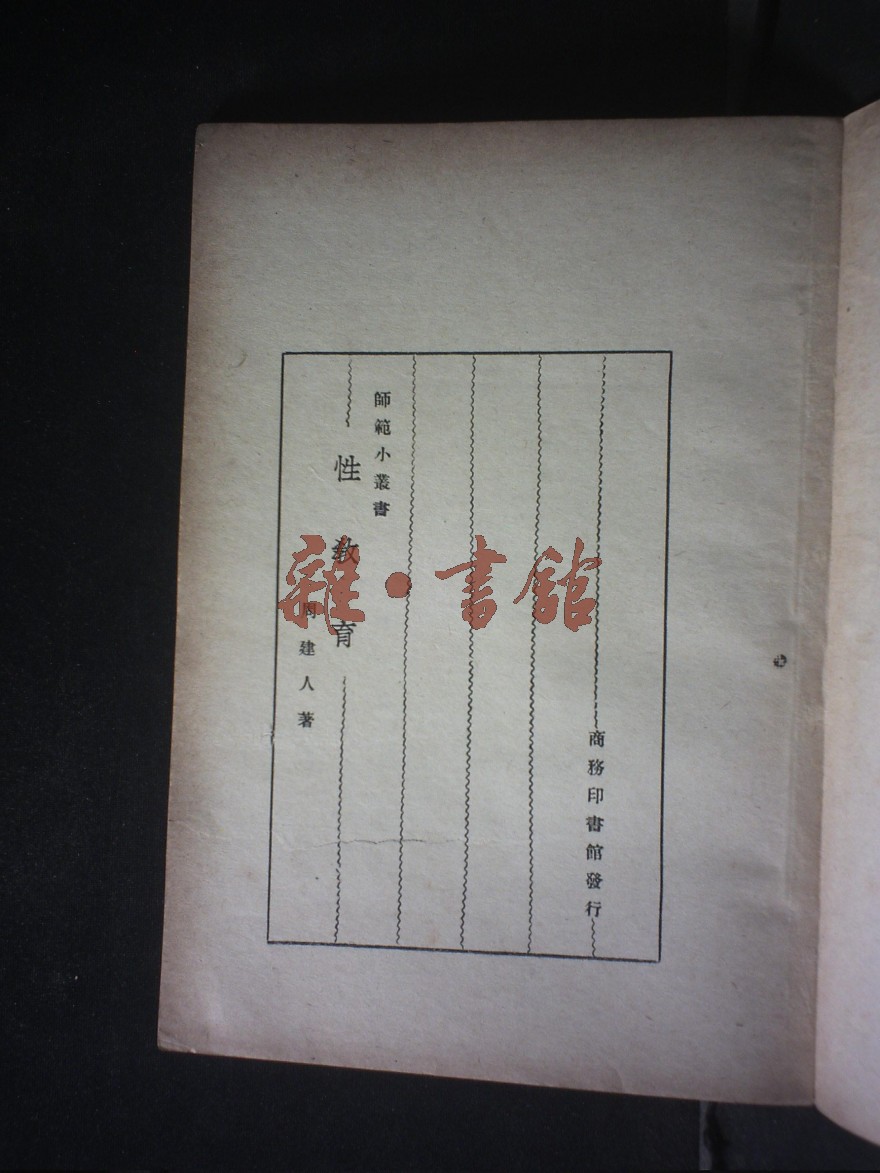 師範小叢書
性教育
周建人著
商務印書館發行
雜·書館